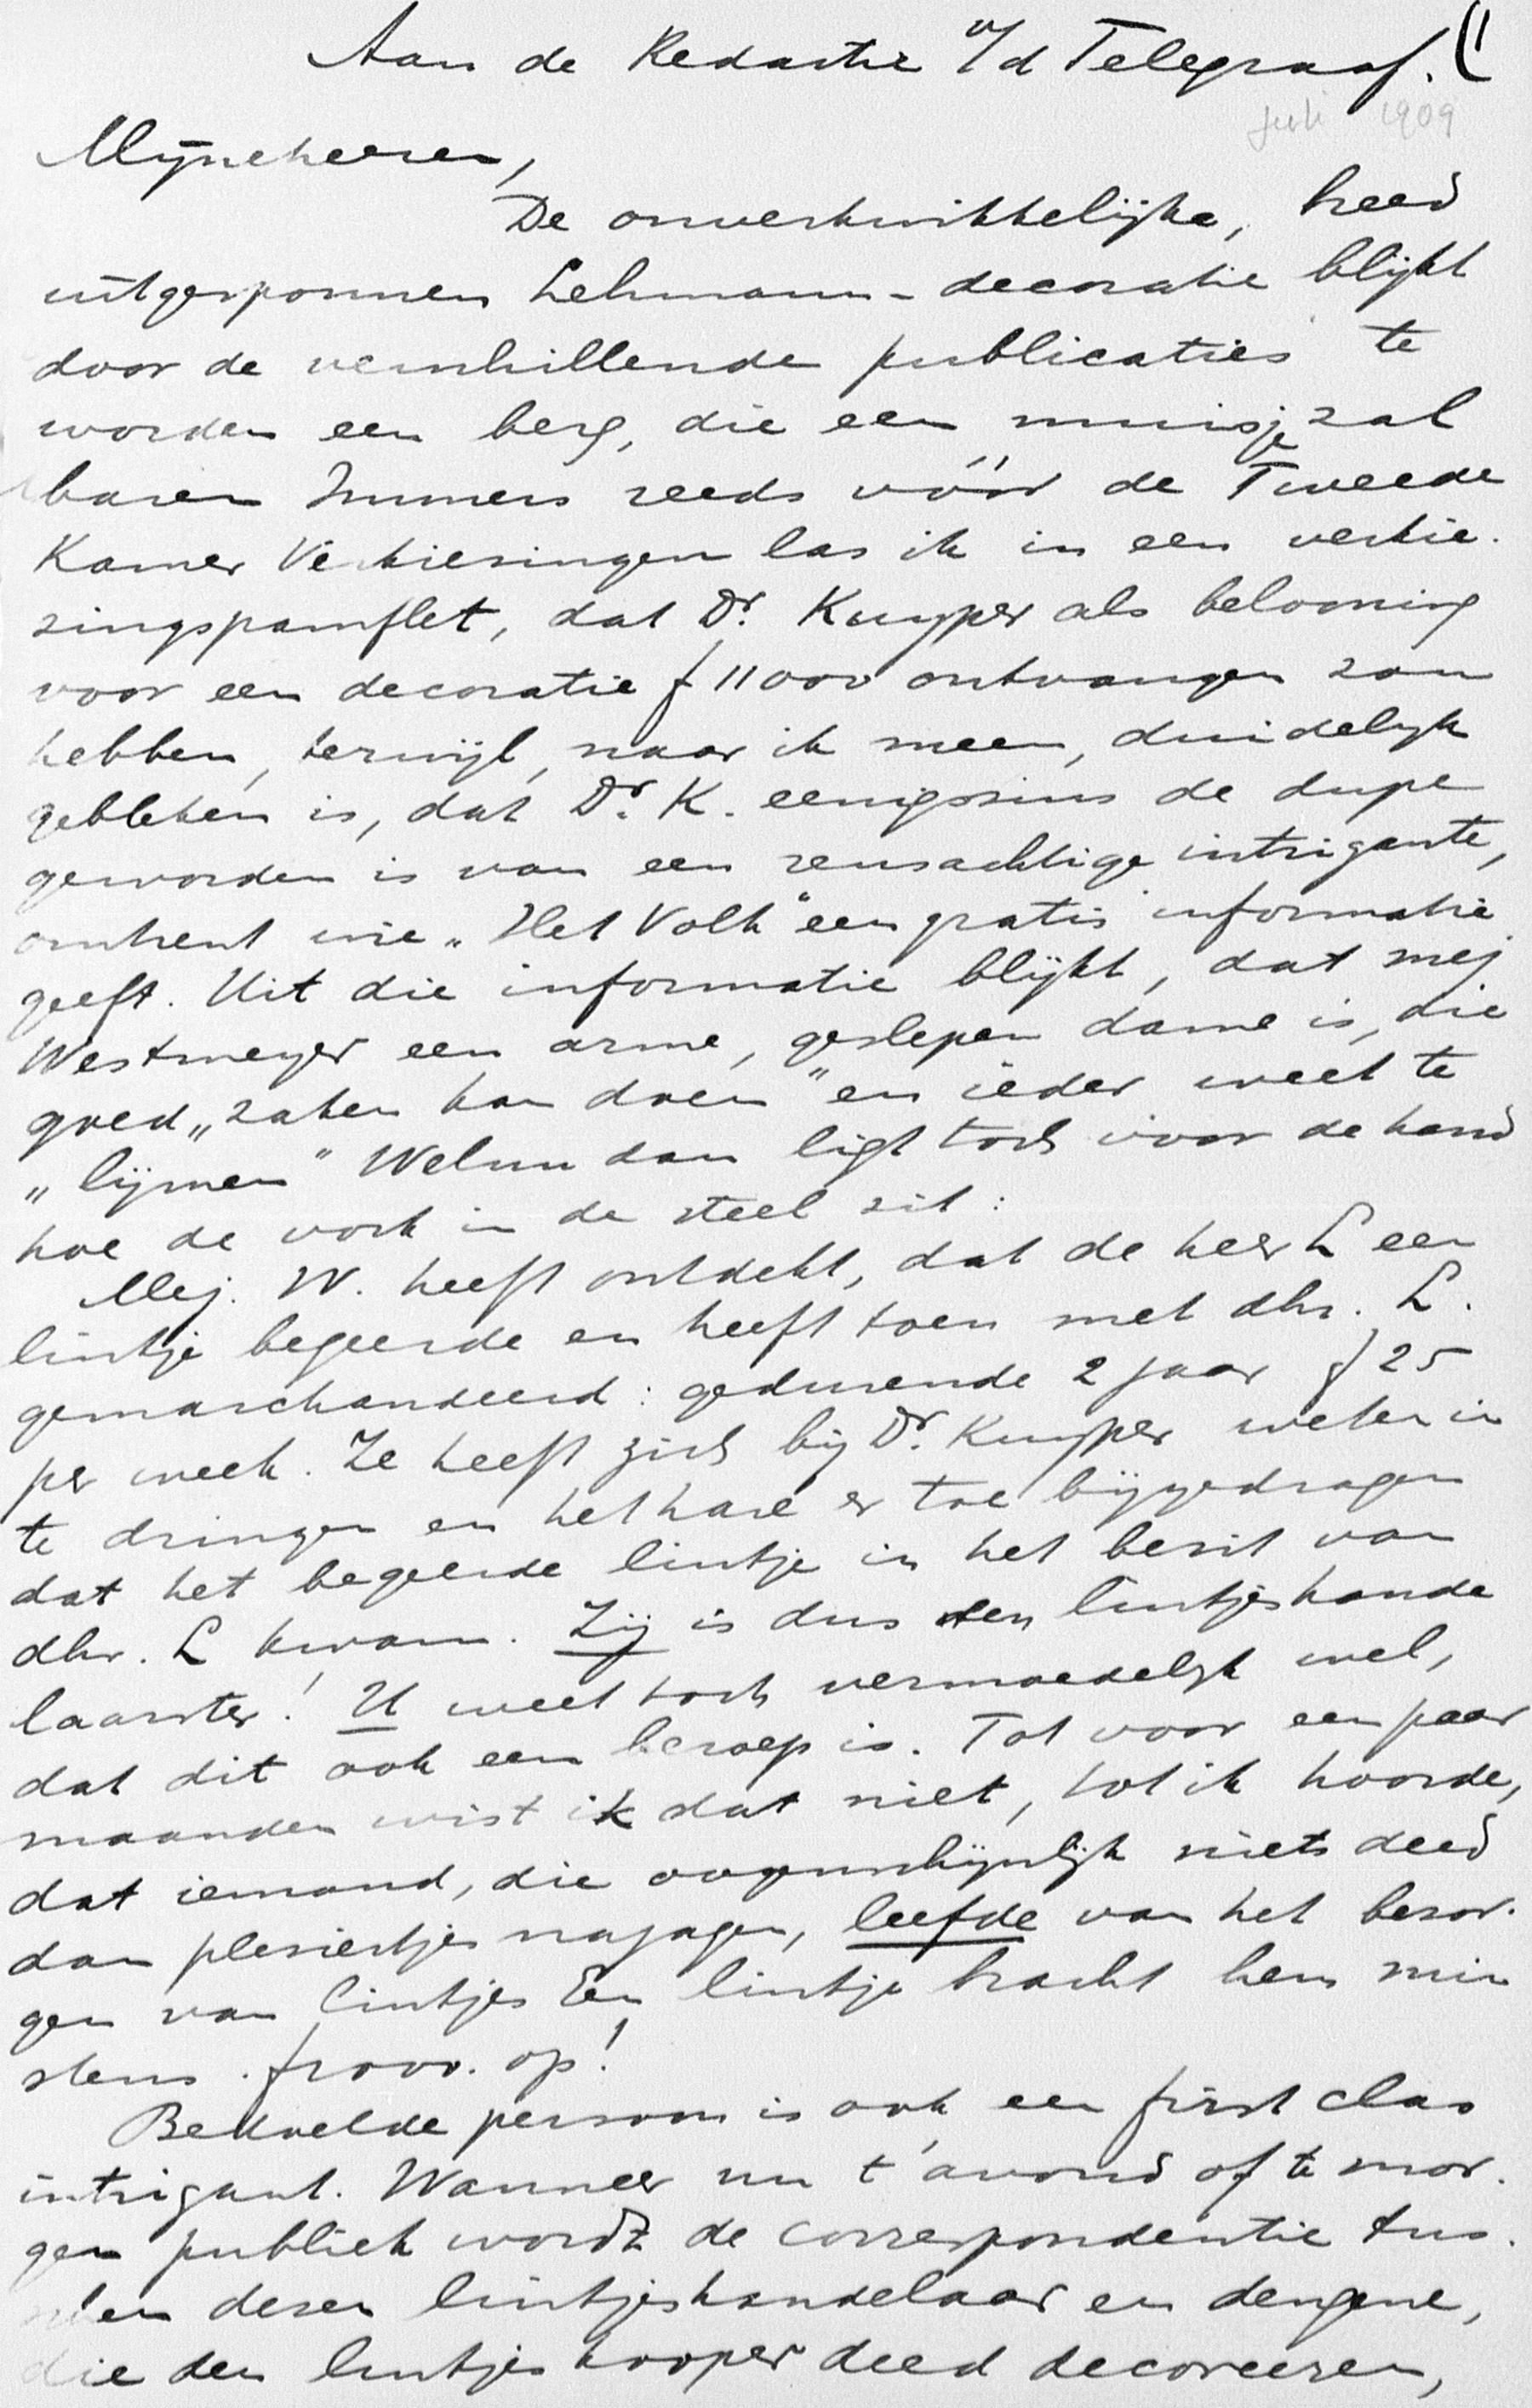 Aan de Redactie v/d Telegraaf.
Juli 1909
Mijneheeren,
De onverkwikkelijke, breed
uitgesponnen Lehmann-decoratie blijkt
door de verschillende publicaties te
worden een berg, die een muisje zal
baren Immers reeds vóór de Tweede
Kamer Verkiesingen las ik in een verkie-
singspamflet, dat Dr. Kuyper als belooning
voor een decoratie f 11000 ontvangen zou
hebben, terwijl, naar ik meen, duidelijk
gebleken is, dat Dr. K. eenigszins de dupe
geworden is van een reusachtige intrigante,
omtrent wie „Het Volk" een gratis informatie
geeft. Uit die informatie blijkt, dat mej
Westmeyer een arme, geslepen dame is, die
goed „zaken kan doen" en ieder weet te
„lijmen" Welnu dan ligt toch voor de hand
hoe de vork in de steel zit:
Mej. W. heeft ontdekt, dat de heer L een
lintje begeerde en heeft toen met dhr. L.
gemarchandeerd: gedurende 2 jaar f 25
per week. Ze heeft zich bij Dr. Kuyper weten in
te dringen en het hare er toe bijgedragen
dat het begeerde lintje in het bezit van
dhr. L kwam. Zij is dus een lintjeshande
laarster! U weet toch vermoedelijk wel,
dat dit ook een beroep is. Tot voor een paar
maanden wist ik dat niet, tot ik hoorde,
dat iemand, die oogenschijnlijk niets deed
dan pleziertjes najagen, leefde van het bezor-
gen van lintjes Een lintje bracht hem min
stens op!
Bedoelde persoon is ook een first clas
intrigant. Wanneer nu t'avond of te mor-
gen publiek wordt de correspondentie tus-
schen dezen lintjeshandelaar en dengene,
die den lintjeskooper deed decoreeren,